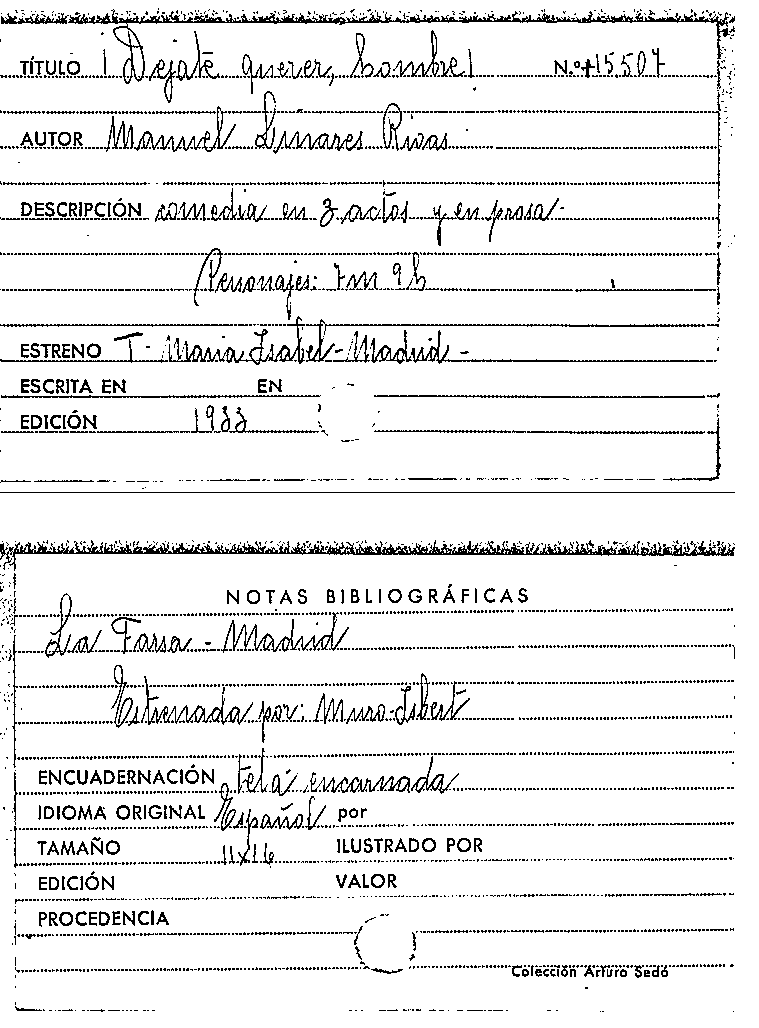 TÍTULO ¡Dejate querer, hombre! N.º +15507
AUTOR Manuel Linares Rivas
DESCRIPCIÓN comedia en 3 actos y en prosa-
Personajes: 7m 9h
ESTRENO T- Maria Isabel-Madrid-
ESCRITA EN EN
EDICIÓN 1933
NOTAS BIBLIOGRÁFICAS
La Farsa - Madrid
Estrenada por: Muro-Isbert
ENCUADERNACIÓN tela encarnada
IDIOMA ORIGINAL Español por
TAMAÑO 11x16 ILUSTRADO POR
EDICIÓN VALOR
PROCEDENCIA
Colección Arturo Sedó